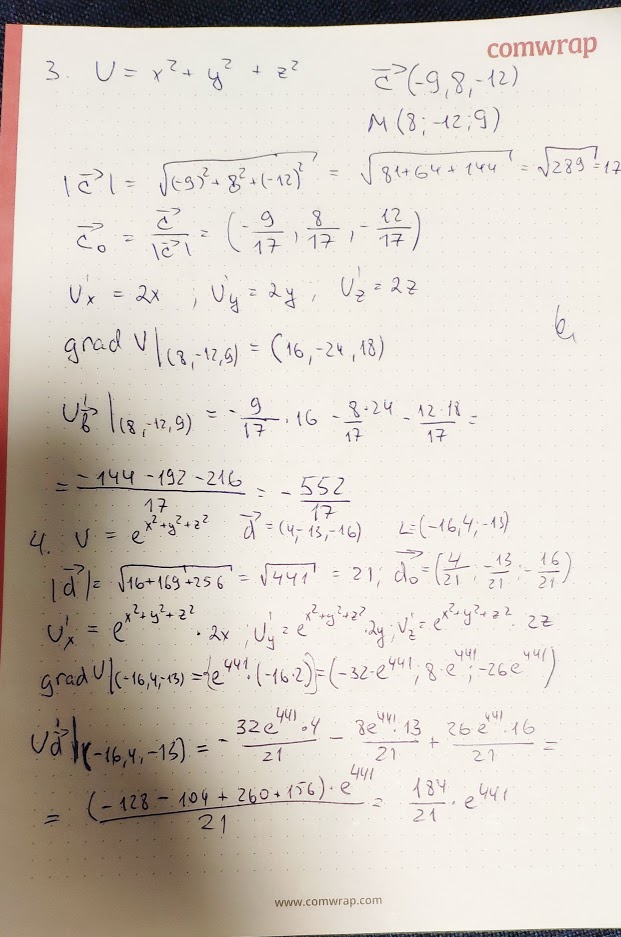 comwrap
3. U = x² + y² + z² c⃗ (-9, 8, -12)
M (8; -12; 9)
|c⃗| = √((-9)² + 8² + (-12)²) = √(81+64+144) = √289 = 17
c⃗₀ = c⃗/|c⃗| = (-9/17, 8/17, -12/17)
U'x = 2x ; U'y = 2y ; U'z = 2z
grad U|(8,-12,9) = (16, -24, 18)
U'b⃗|(8,-12,9) = -9/17 · 16 - 8·24/17 - 12·18/17 =
= (-144 - 192 - 216)/17 = -552/17
4. U = e^(x²+y²+z²) d⃗ = (4,-13,-16) L = (-16,4,-13)
|d⃗| = √(16+169+256) = √441 = 21; d⃗₀ = (4/21; -13/21; -16/21)
U'x = e^(x²+y²+z²) · 2x ; U'y = e^(x²+y²+z²) · 2y ; U'z = e^(x²+y²+z²) · 2z
grad U|(-16,4,-13) = {e^441 · (-16·2)} = (-32·e^441; 8·e^441; -26e^441)
U'd⃗|(-16,4,-13) = -32e^441·4/21 - 8e^441·13/21 + 26e^441·16/21 =
= (-128 - 104 + 260 + 156)·e^441/21 = 184/21 · e^441
www.comwrap.com